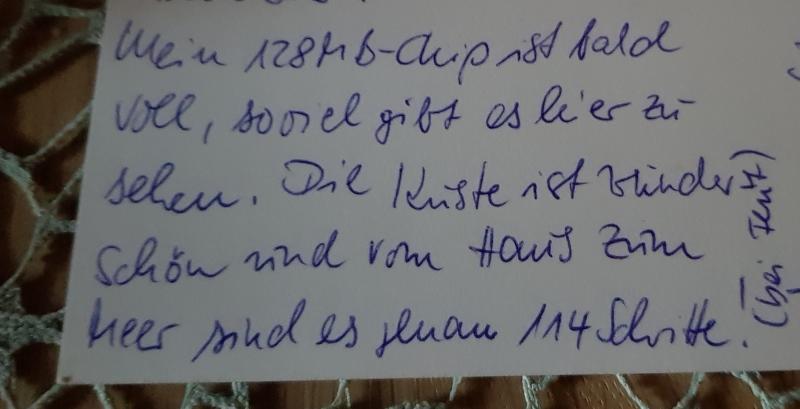 Mein 128MB-Chip ist bald
voll, soviel gibt es hier zu
sehen. Die Küste ist wunder
schön und vom Haus zum
Meer sind es genau 114 Schritte!
(bei